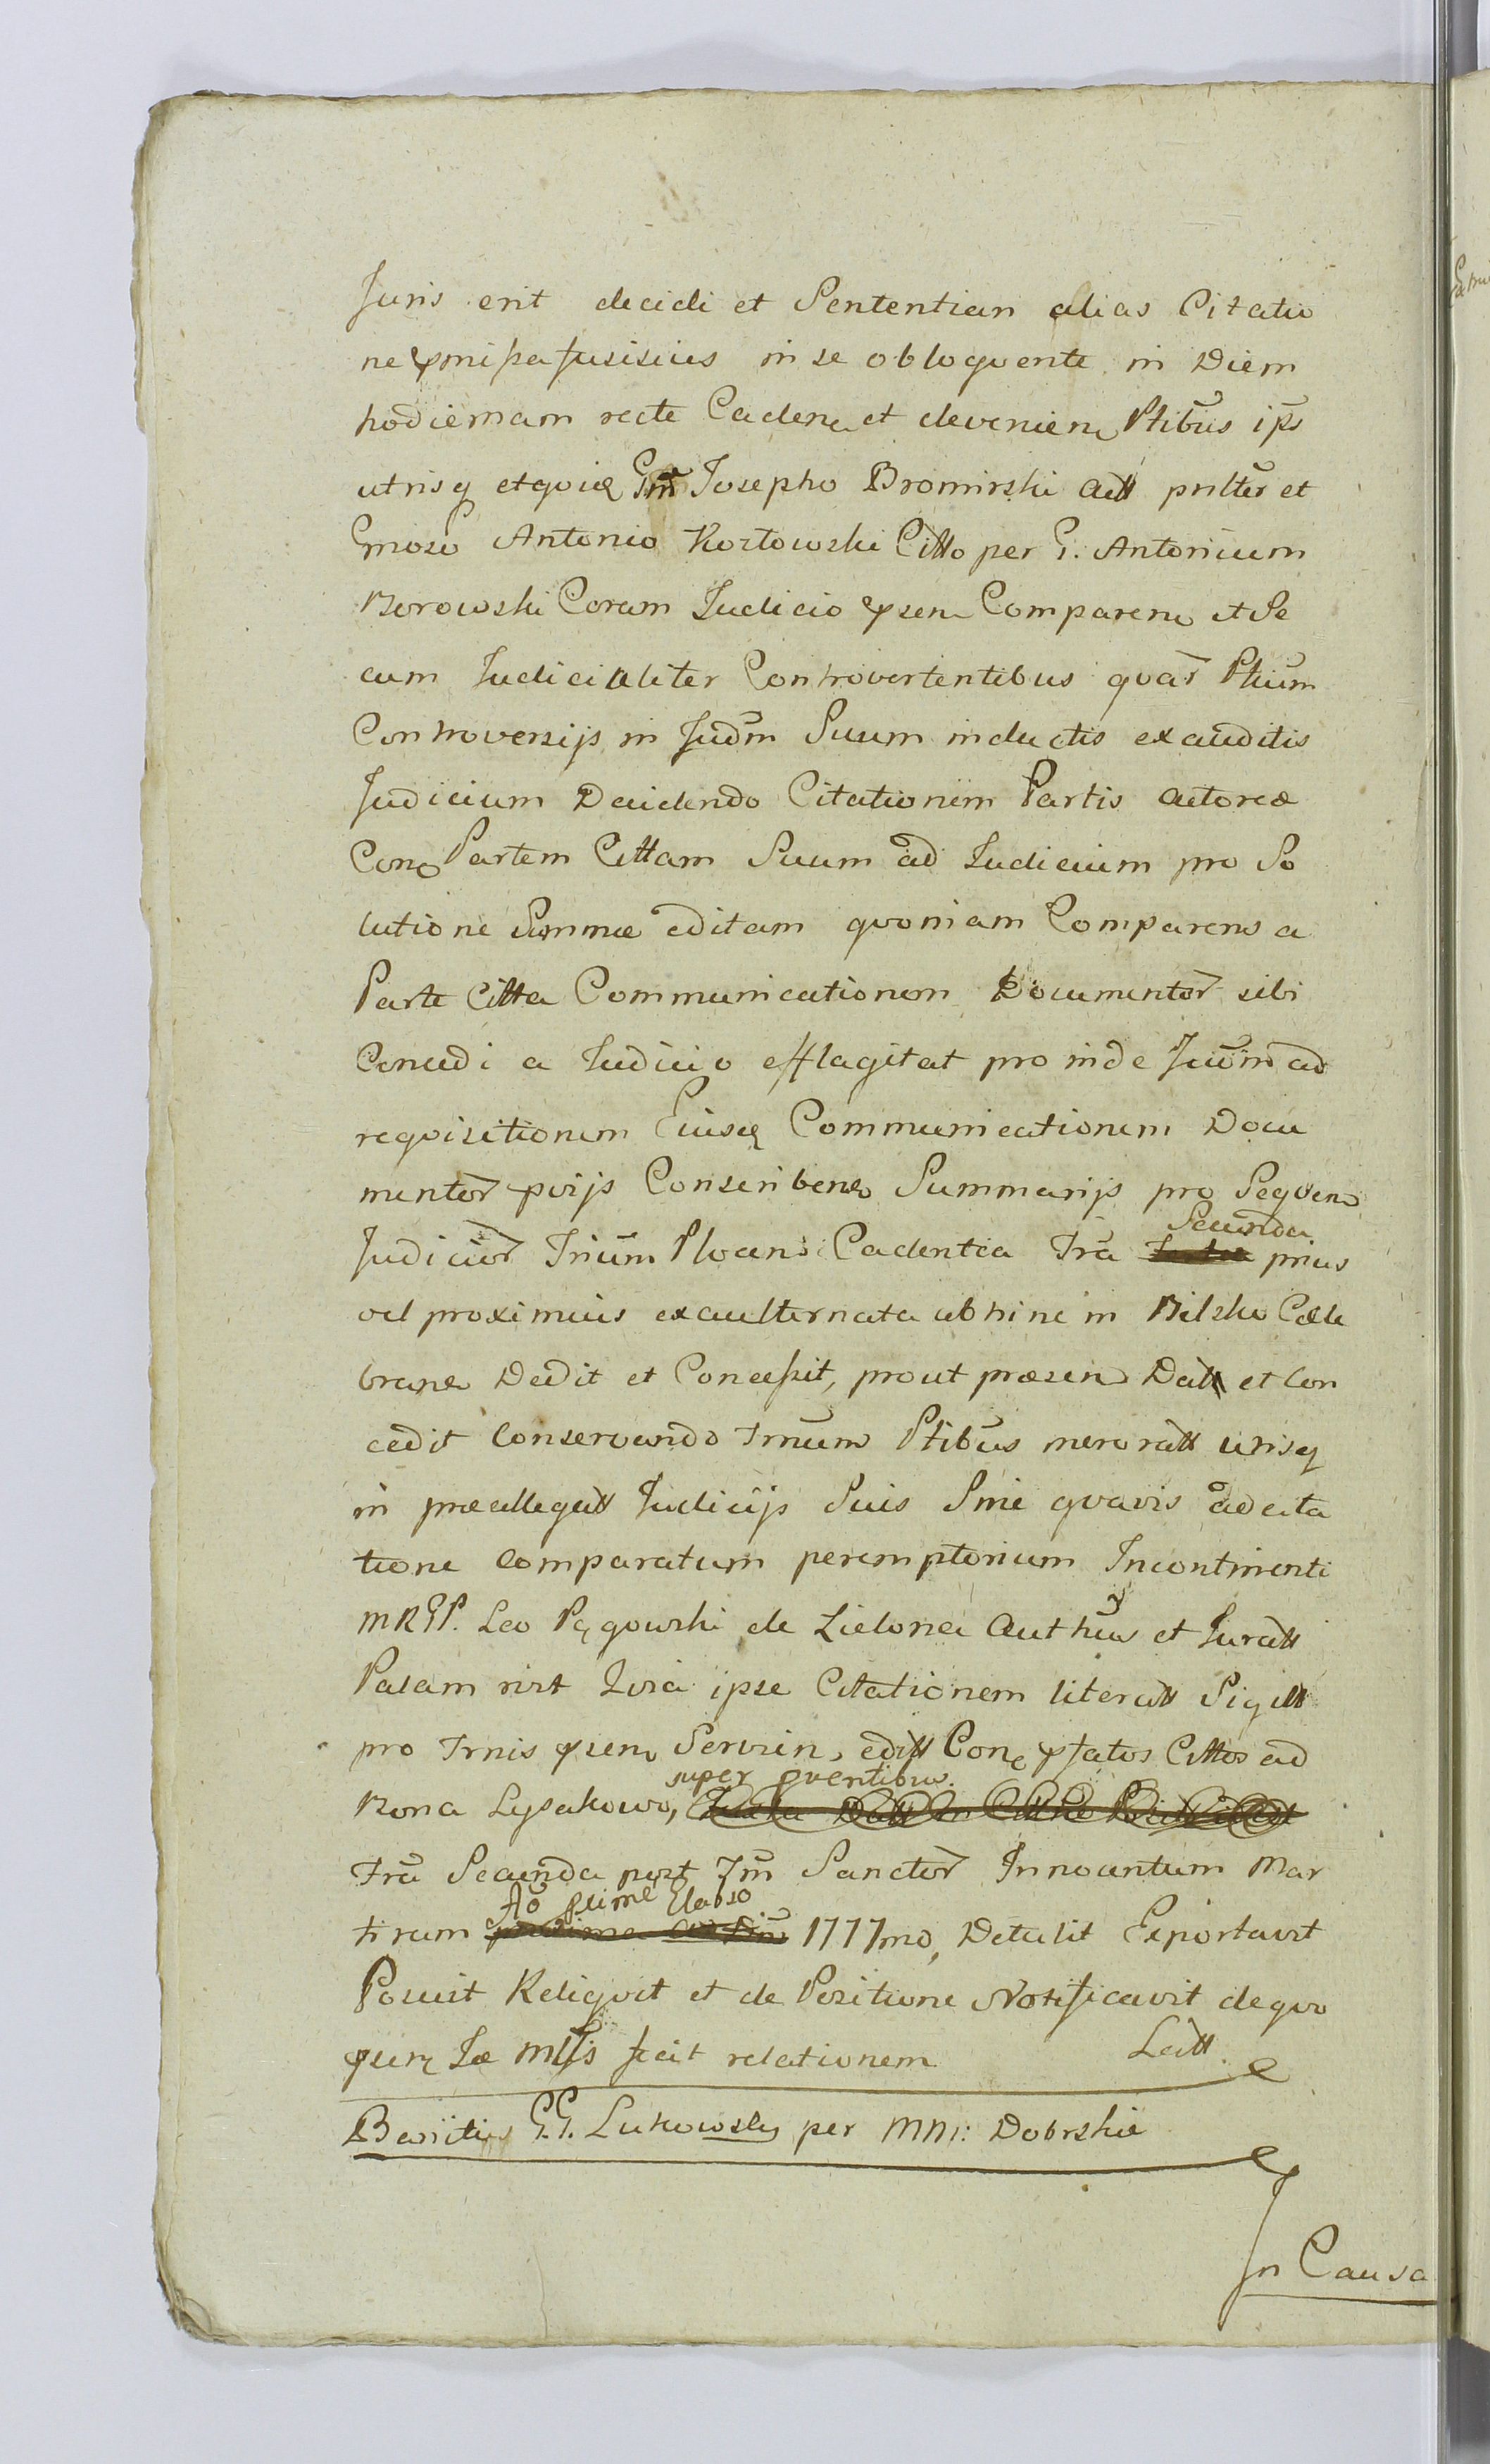 Juris erit decidi et Sententiari alias Citatio
ne in se obloquente in Diem
hodiernam recte Caden et devenien Ptibus ips
utrisq Josepho Bromirski Actt prilter et
Gnoso Antonio Kozłowski Citto per G. Antonium
Borowski Coram Judicio psen Comparen et Se
cum Judicialiter Controvertentibus quar Ptium
Controversijs in Judm Suum inductis exauditis
Judicium Decidendo Citationem Partis actoreæ
Con Partem Cittam Suum ad Judicium pro So
lutione Summæ editam quoniam Comparens a
Parte Citta Communicationem Documentor sibi
Concedi a Judicio efflagitat pro inde ad
requisitionem Eiusq Communicationem Docu
mentor pvijs Conscriben Summarijs pro Sequen
Judicior Trium Plocen Cadentia Fra Secunda prius
vel proximius exaulternata abhinc in Bilsko Cele
bran Dedit et Concessit, prout præsen Datt et Con
cedit Conservando Trnum Ptibus utrisq
in præallegatt Judicijs Suis Sine quavis adcita
tione Comparatum peremptorium Incontinenti
MRGP. Leo Pągowski de Zielona Authus et Juratt
Palam rist Quia ipse Citationem literatt Sigill
pro Trnis psen Servien, editt Con pfatos Cittos ad
super pventibus
Bona Lysakowo,
Fra Secunda post Fm Sanctor Innocentum Mar
Ao Elapso
tirum 1777mo, Detulit Exportavit
Posuit Reliquit et de Positione Notificavit de quo
relationem Latt
Banitio G.G. Lukowsky per MM: Dobrskie
In Causa